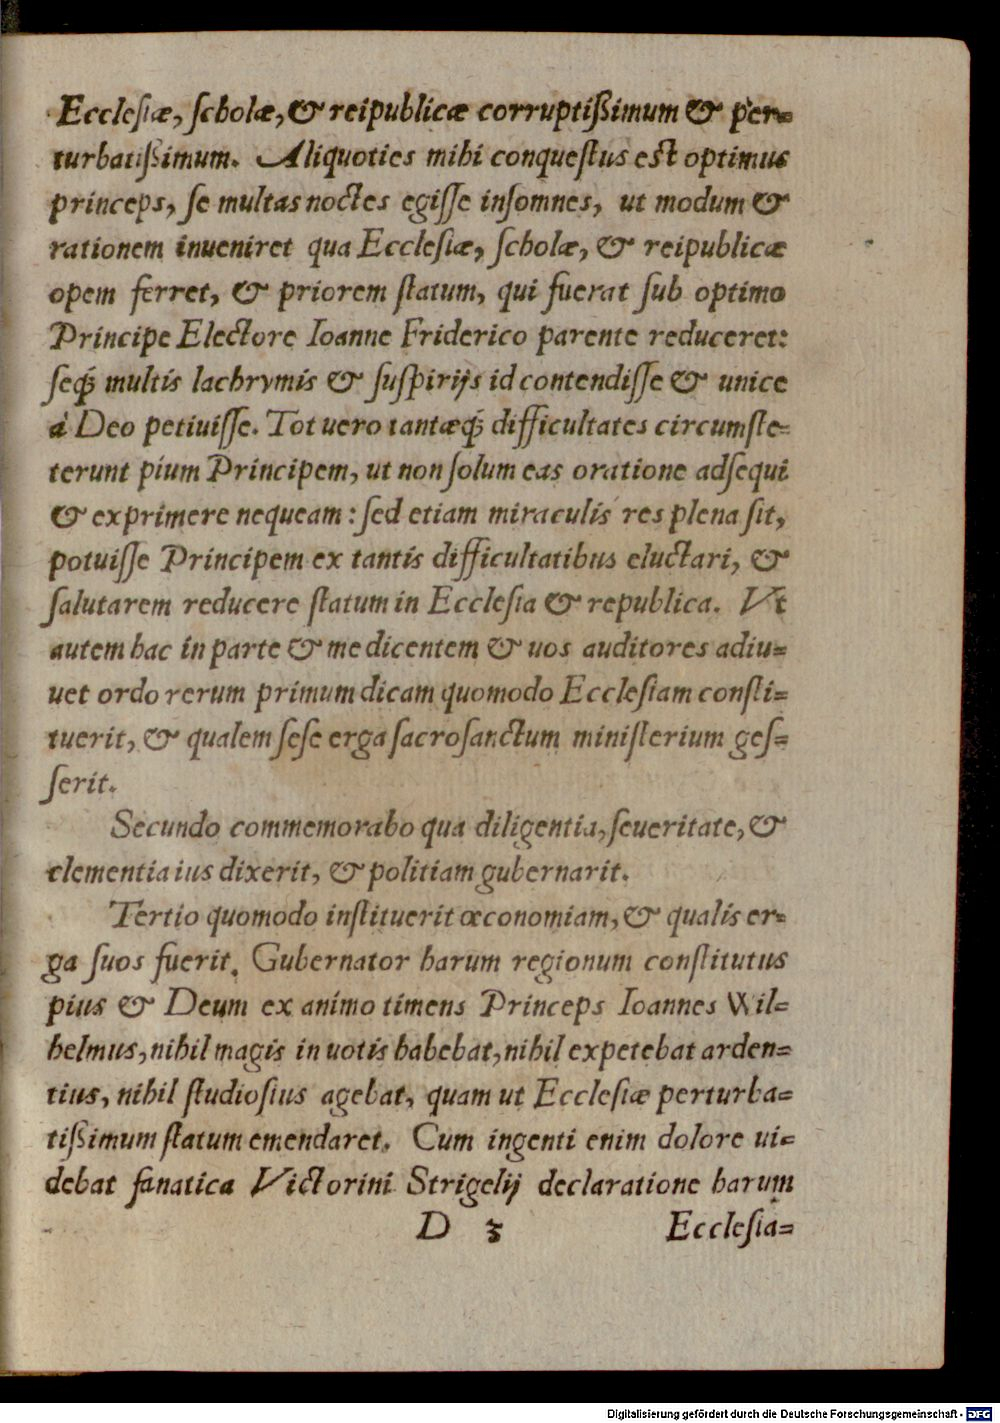 Ecclesiæ, scholæ, & reipublicæ corruptißimum & per=
turbatißimum. Aliquoties mihi conquestus est optimus
princeps, se multas noctes egisse insomnes, ut modum &
rationem inueniret qua Ecclesiæ, scholæ, & reipublicæ
opem ferret, & priorem statum, qui fuerat sub optimo
Principe Electore Ioanne Friderico parente reduceret:
seq́; multis lachrymis & suspirijs id contendisse & unice
à Deo petiuisse. Tot uero tantæq́; difficultates circumste=
terunt pium Principem, ut non solum eas oratione adsequi
& exprimere nequeam: sed etiam miraculis res plena sit,
potuisse Principem ex tantis difficultatibus eluctari, &
salutarem reducere statum in Ecclesia & republica. Vt
autem hac in parte & me dicentem & uos auditores adiu=
uet ordo rerum primum dicam quomodo Ecclesiam consti=
tuerit, & qualem sese erga sacrosanctum ministerium ges=
serit.
Secundo commemorabo qua diligentia, seueritate, &
clementia ius dixerit, & politiam gubernarit.
Tertio quomodo instituerit œconomiam, & qualis er=
ga suos fuerit. Gubernator harum regionum constitutus
pius & Deum ex animo timens Princeps Ioannes Wil=
helmus, nihil magis in uotis habebat, nihil expetebat arden=
tius, nihil studiosius agebat, quam ut Ecclesiæ perturba=
tißimum statum emendaret. Cum ingenti enim dolore ui=
debat fanatica Victorini Strigelij declaratione harum
D 3 Ecclesia=
Digitalisierung gefördert durch die Deutsche Forschungsgemeinschaft - DFG